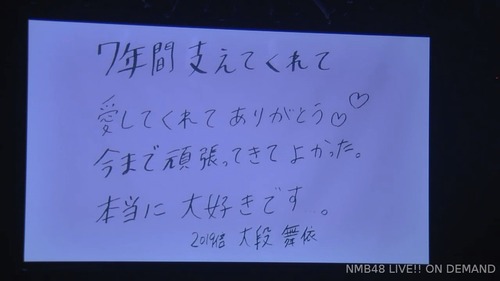 7年間支えてくれて
愛してくれてありがとう♡♡
今まで頑張ってきてよかった。
本当に大好きです。
2019倍 大段舞依
NMB48 LIVE!! ON DEMAND